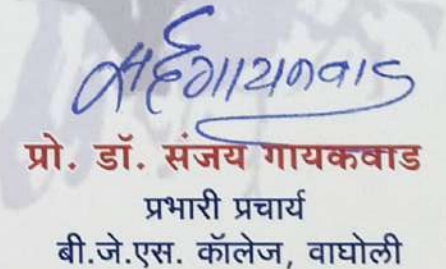 प्रो. डॉ. संजय गायकवाड
प्रभारी प्रचार्य
बी.जे.एस. कॉलेज, वाघोली